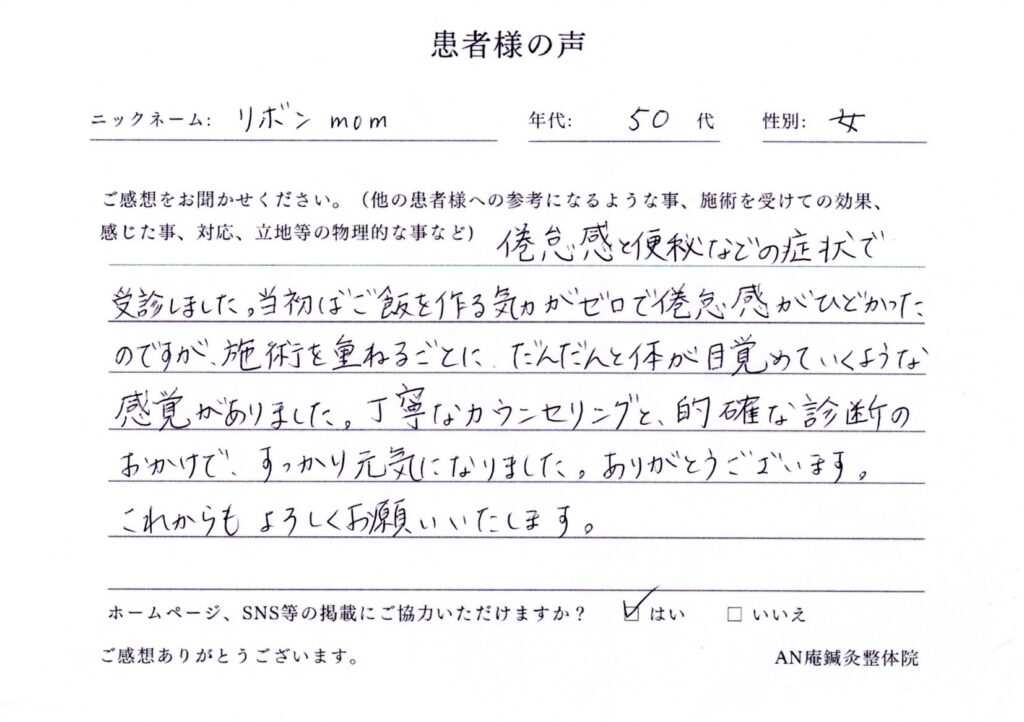 患者様の声
ニックネーム: リボン mom 年代: 50 代 性別: 女
ご感想をお聞かせください。（他の患者様への参考になるような事、施術を受けての効果、
感じた事、対応、立地等の物理的な事など） 倦怠感と便秘などの症状で
受診しました。当初はご飯を作る気力がゼロで倦怠感がひどかった
のですが、施術を重ねるごとに、だんだんと体が目覚めていくような
感覚がありました。丁寧なカウンセリングと、的確な診断の
おかげで、すっかり元気になりました。ありがとうございます。
これからもよろしくお願いいたします。
ホームページ、SNS等の掲載にご協力いただけますか？ ☑ はい □ いいえ
ご感想ありがとうございます。 AN庵鍼灸整体院